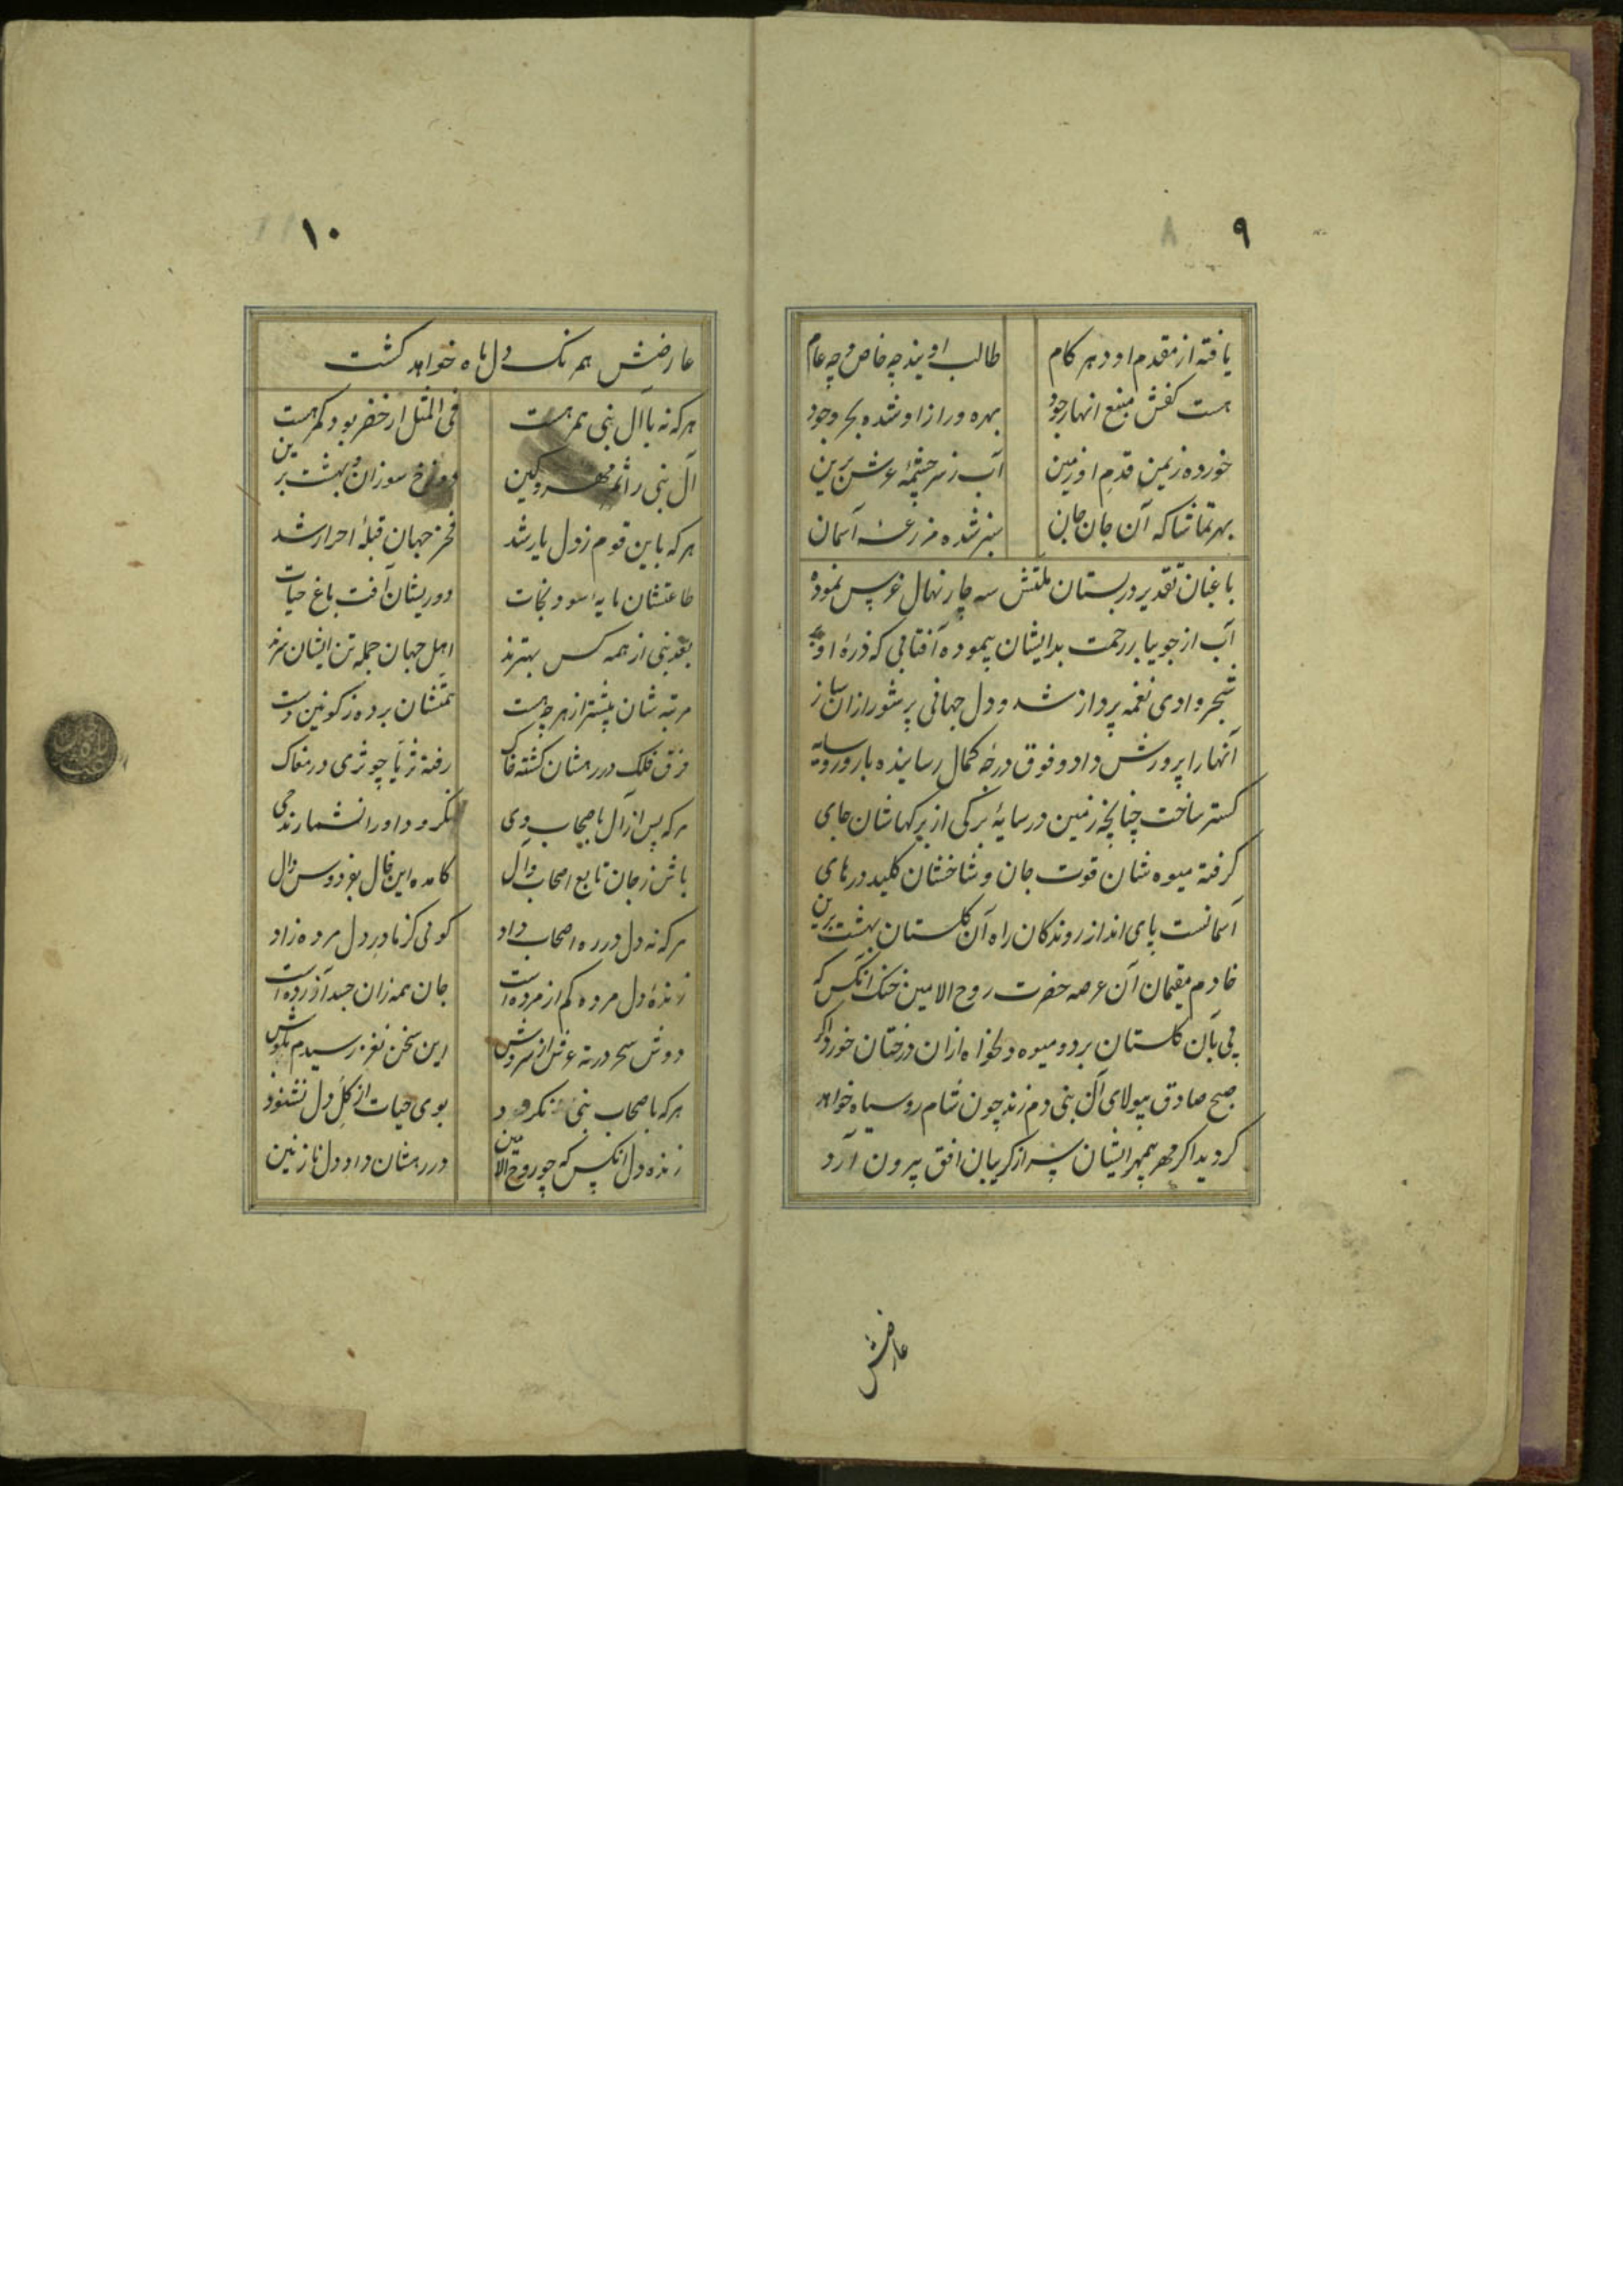 ۹
یافته از مقدم او دهر کام طالب اویند چه خاص و چه عام
هست کفش منبع انهار جود بهره ور از او شده بحر وجود
خورده ز یمن قدم او زمین آب ز سرچشمهٔ عرش برین
بهر تماشا که آن جان جهان سبز شده مزرعه آسمان
باغبان تقدیر در بستان ملتش سه چار نهال غرس نموده
آب از جویبار رحمت بدایشان پیموده آفتابی که ذرهٔ او
شجر وادی نغمه پرداز شد و دل جهانی پرشور ازان ساز
آنها را پرورش داد و فوق درجهٔ کمال رسانیده بارور و سایه
کستر ساخت چنانچه زمین در سایهٔ برکی از برکهاشان جای
کرفته میوه شان قوت جان و شاخشان کلید درهای
آسمانست پای انداز روندکان راه آن کلستان بهشت برین
خادم مقیمان آن عرصه حضرت روح الامین خنک آنکس که
پی بآن کلستان برد و میوه دلخواه ازان درختان خورد اکر
صبح صادق بیولای آل نبی دم زند چون شام روسیاه خواهد
کردید اکر مهر بیمهر ایشان سر از کریبان افق بیرون آرد
عارضش
۱۰
عارضش همرنک دل ماه خواهد کشت
هرکه نه با آل نبی همرهست فی المثل ار خضر بود کمرهست
آل نبی را ثمر مهر و کین دوزخ سوزان و بهشت برین
هرکه باین قوم ز دل یار شد فخر جهان قبلهٔ احرار شد
طاعتشان مایه سود و نجات دوریشان آفت باغ حیات
بعد نبی از همه کس بهترند اهل جهان جمله تن ایشان سرند
مرتبه شان بیشتر از هرچه هست همتشان برده ز کونین دست
فرق فلک در رهشان کشته خاک رفته ثریا چو ثری در مغاک
هرکه پس از آل باصحاب وی نکرود او را نشمارند حی
باش ز جان تابع اصحاب و آل کامده این فال بفردوس دال
هرکه نه دل در ره اصحاب داد کوئی کز مادر دل مرده زاد
زندهٔ دل مرده کم از مرده است جان همه زان جسد آزرده است
دوش سحر در ته عرش از سروش این سخن نغز رسیدم بکوش
هرکه باصحاب نبی نکرود بوی حیات از کل دل نشنود
زنده دل آنکس که چو روح الامین در رهشان داد دل نازنین